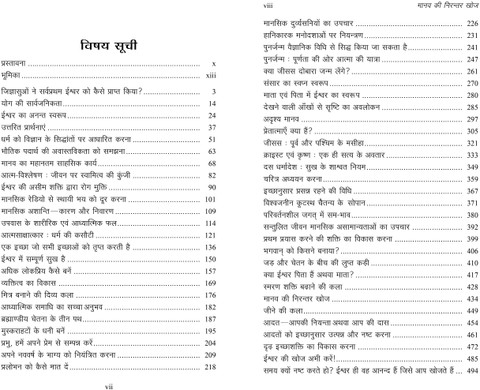 विषय सूची
प्रस्तावना x
भूमिका xiii
जिज्ञासुओं ने सर्वप्रथम ईश्वर को कैसे प्राप्त किया? 3
योग की सार्वजनिकता 14
ईश्वर का अनन्त स्वरूप 24
उत्तरित प्रार्थनाएं 37
धर्म को विज्ञान के सिद्धांतों पर आधारित करना 51
भौतिक पदार्थ की अवास्तविकता को समझना 63
मानव का महानतम साहसिक कार्य 68
आत्म-विश्लेषण : जीवन पर स्वामित्व की कुंजी 82
ईश्वर की असीम शक्ति द्वारा रोग मुक्ति 90
मानसिक रेडियो से स्थायी भय को दूर करना 101
मानसिक अशान्ति—कारण और निवारण 109
उपवास के शारीरिक एवं आध्यात्मिक फल 114
आत्मसाक्षात्कार : धर्म की कसौटी 121
एक इच्छा जो सभी इच्छाओं को तृप्त करती है 136
ईश्वर में सम्पूर्ण सुख है 150
अधिक लोकप्रिय कैसे बनें 157
व्यक्तित्व का विकास 169
मित्र बनाने की दिव्य कला 176
आध्यात्मिक समाधि का सच्चा अनुभव 182
ब्रह्माण्डीय चेतना के तीन पथ 187
मुस्कराहटों के धनी बनें 195
प्रभु, हमें अपने प्रेम से सम्पन्न करें 204
अपने नववर्ष के भाग्य को नियंत्रित करना 209
प्रलोभन को कैसे मात दें 218
vii
viii मानव की निरन्तर खोज
मानसिक दुर्व्यसनियों का उपचार 226
हानिकारक मनोदशाओं पर नियन्त्रण 231
पुनर्जन्म वैज्ञानिक विधि से सिद्ध किया जा सकता है 241
पुनर्जन्म : पूर्णता की ओर आत्मा की यात्रा 247
क्या जीसस दोबारा जन्म लेंगे? 261
संसार का स्वप्न स्वरूप 270
माता एवं पिता में ईश्वर का स्वरूप 280
देखने वाली आँखों से सृष्टि का अवलोकन 285
अदृश्य मानव 297
प्रेतात्माएँ क्या हैं? 305
जीसस : पूर्व और पश्चिम के मसीहा 321
क्राइस्ट एवं कृष्ण : एक ही सत्य के अवतार 333
दस धर्मादेश : सुख के शाश्वत नियम 349
चरित्र अध्ययन करना 359
इच्छानुसार प्रसन्न रहने की विधि 367
विश्वजनीन कूटस्थ चैतन्य के सोपान 371
परिवर्तनशील जगत् में सम-भाव 380
सन्तुलित जीवन मानसिक असामान्यताओं का उपचार 392
प्रथम प्रयास करने की शक्ति का विकास करना 399
भगवान् को किसने बनाया? 406
जड़ और चेतन के बीच की लुप्त कड़ी 410
क्या ईश्वर पिता हैं अथवा माता? 417
स्मरण शक्ति बढ़ाने की कला 428
मानव की निरन्तर खोज 434
जीने की कला 449
आदत—आपकी नियन्ता अथवा आप की दास 454
आदतों को इच्छानुसार उत्पन्न और नष्ट करना 461
दृढ़ इच्छाशक्ति का विकास करना 472
ईश्वर की खोज अभी करें! 485
समय क्यों नष्ट करते हो? ईश्वर ही वह आनन्द हैं जिसे आप खोजते हैं 494